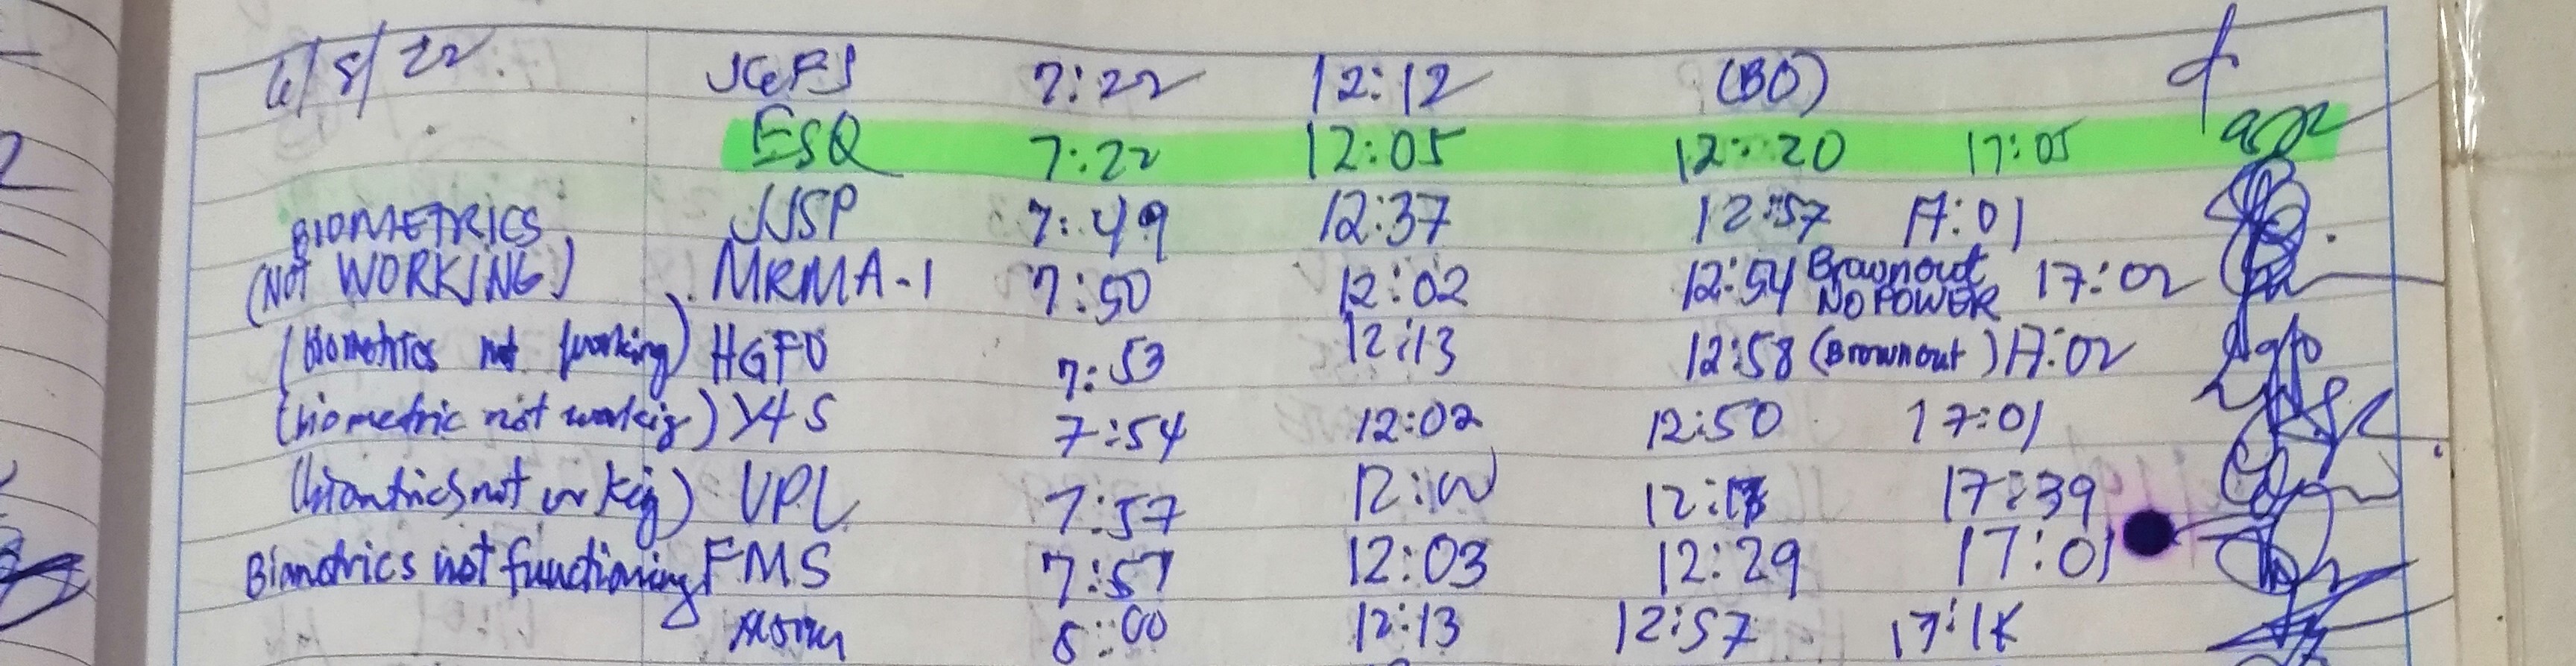 6/8/22 7:22 12:12 (BO)
ESQ 7:22 12:05 12:20 17:05
BIOMETRICS JJSP 7:49 12:37 12:57 17:01
(NOT WORKING) MRMA-1 7:50 12:02 12:54 Brownout NO POWER 17:02
(Biometrics not working) HGFO 7:53 12:13 12:58 (Brownout) 17:02
(biometric not workig) 7:54 12:02 12:50 17:01
not VPL 7:57 12:17 17:39
Biometrics not functioning FMS 7:57 12:03 12:29 17:01
8:00 12:13 12:57